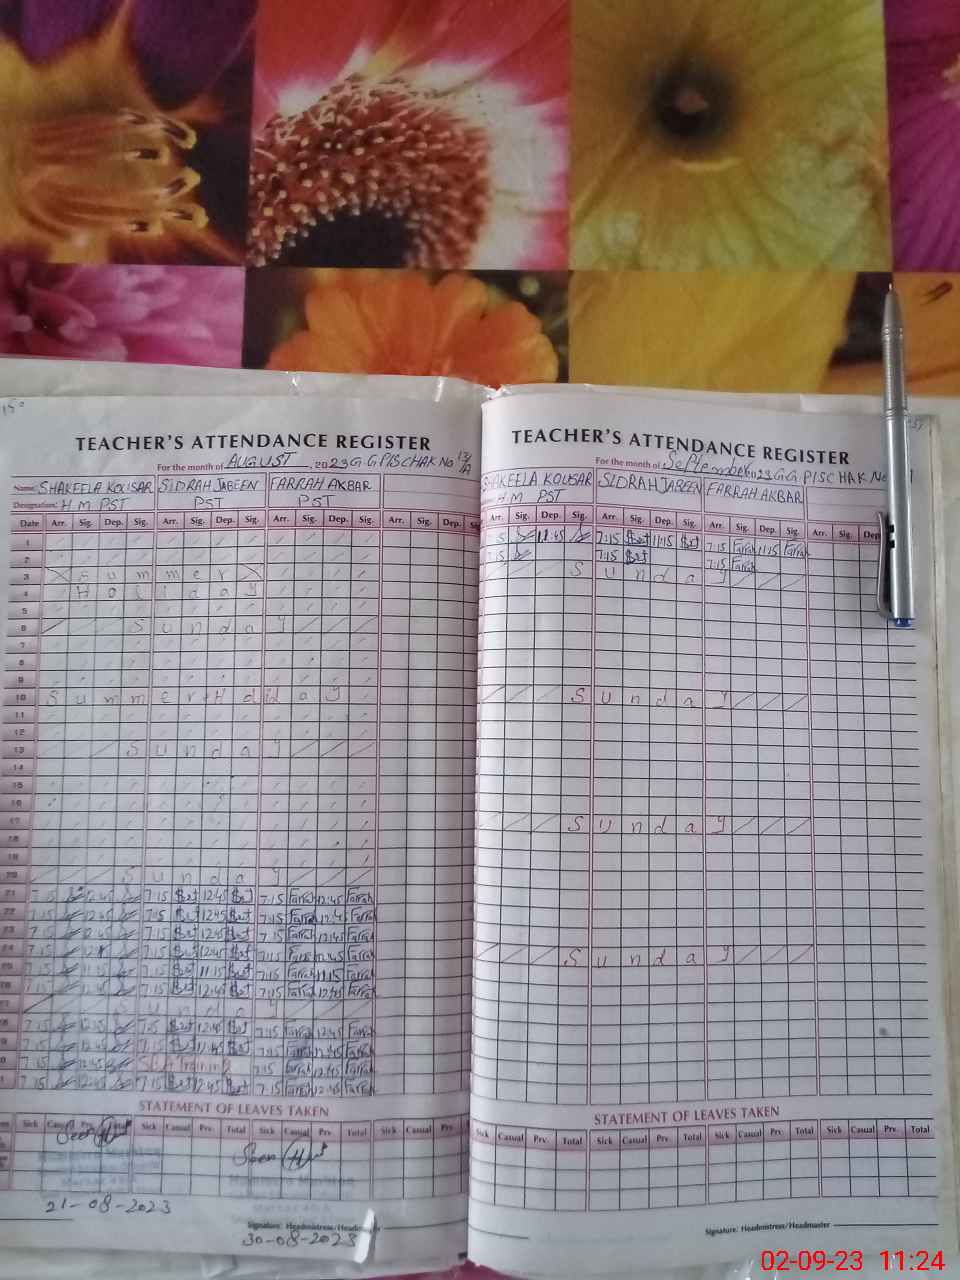 TEACHER'S ATTENDANCE REGISTER
For the month of AUGUST, 2023 G.G.P/S CHAK No 13/A
Name: SHAKEELA KOUSAR SIDRAH JABEEN FARRAH AKBAR
Designation: H.M PST PST PST
Date Arr. Sig. Dep. Sig. Arr. Sig. Dep. Sig. Arr. Sig. Dep. Sig. Arr. Sig. Dep. Sig.
1
2
3 Summer
4 Holiday
5
6 Sunday
7
8
9
10 Summer Holiday
11
12
13 Sunday
14
15
16
17
18
19
20 Sunday
21 7:15 12:45 7:15 12:45 7:15 Farrah 12:45 Farrah
22 7:15 12:45 7:15 12:45 7:15 Farrah 12:45 Farrah
23 7:15 12:45 7:15 12:45 7:15 Farrah 12:45 Farrah
24 7:15 7:15 12:45 7:15 Farrah 12:45 Farrah
25 7:15 11:15 7:15 11:15 7:15 Farrah 11:15 Farrah
7:15 12:45 7:15 12:45 7:15 Farrah 12:45 Farrah
Sunday
7:15 12:45 7:15 12:45 7:15 Farrah 12:45 Farrah
7:15 12:45 7:15 12:45 7:15 Farrah 12:45 Farrah
7:15 12:45 Training 7:15 Farrah 12:45 Farrah
7:15 12:45 7:15 12:45 7:15 Farrah 12:45 Farrah
STATEMENT OF LEAVES TAKEN
Sick Casual Prv. Total Sick Casual Prv. Total Sick Casual Prv. Total Sick Casual Prv.
Seen
Seen
21-08-2023
Signature: Headmistress/Headmaster
30-08-2023
TEACHER'S ATTENDANCE REGISTER
For the month of September 2023 G.G.P/S CHAK No
SHAKEELA KOUSAR SIDRAH JABEEN FARRAH AKBAR
H.M PST
Arr. Sig. Dep. Sig. Arr. Sig. Dep. Sig. Arr. Sig. Dep. Sig. Arr. Sig. Dep.
7:15 11:45 7:15 11:15 7:15 Farrah 11:15 Farrah
7:15 7:15 7:15 Farrah
Sunday
Sunday
Sunday
Sunday
STATEMENT OF LEAVES TAKEN
Sick Casual Prv. Total Sick Casual Prv. Total Sick Casual Prv. Total Sick Casual Prv. Total
Signature: Headmistress/Headmaster
02-09-23 11:24